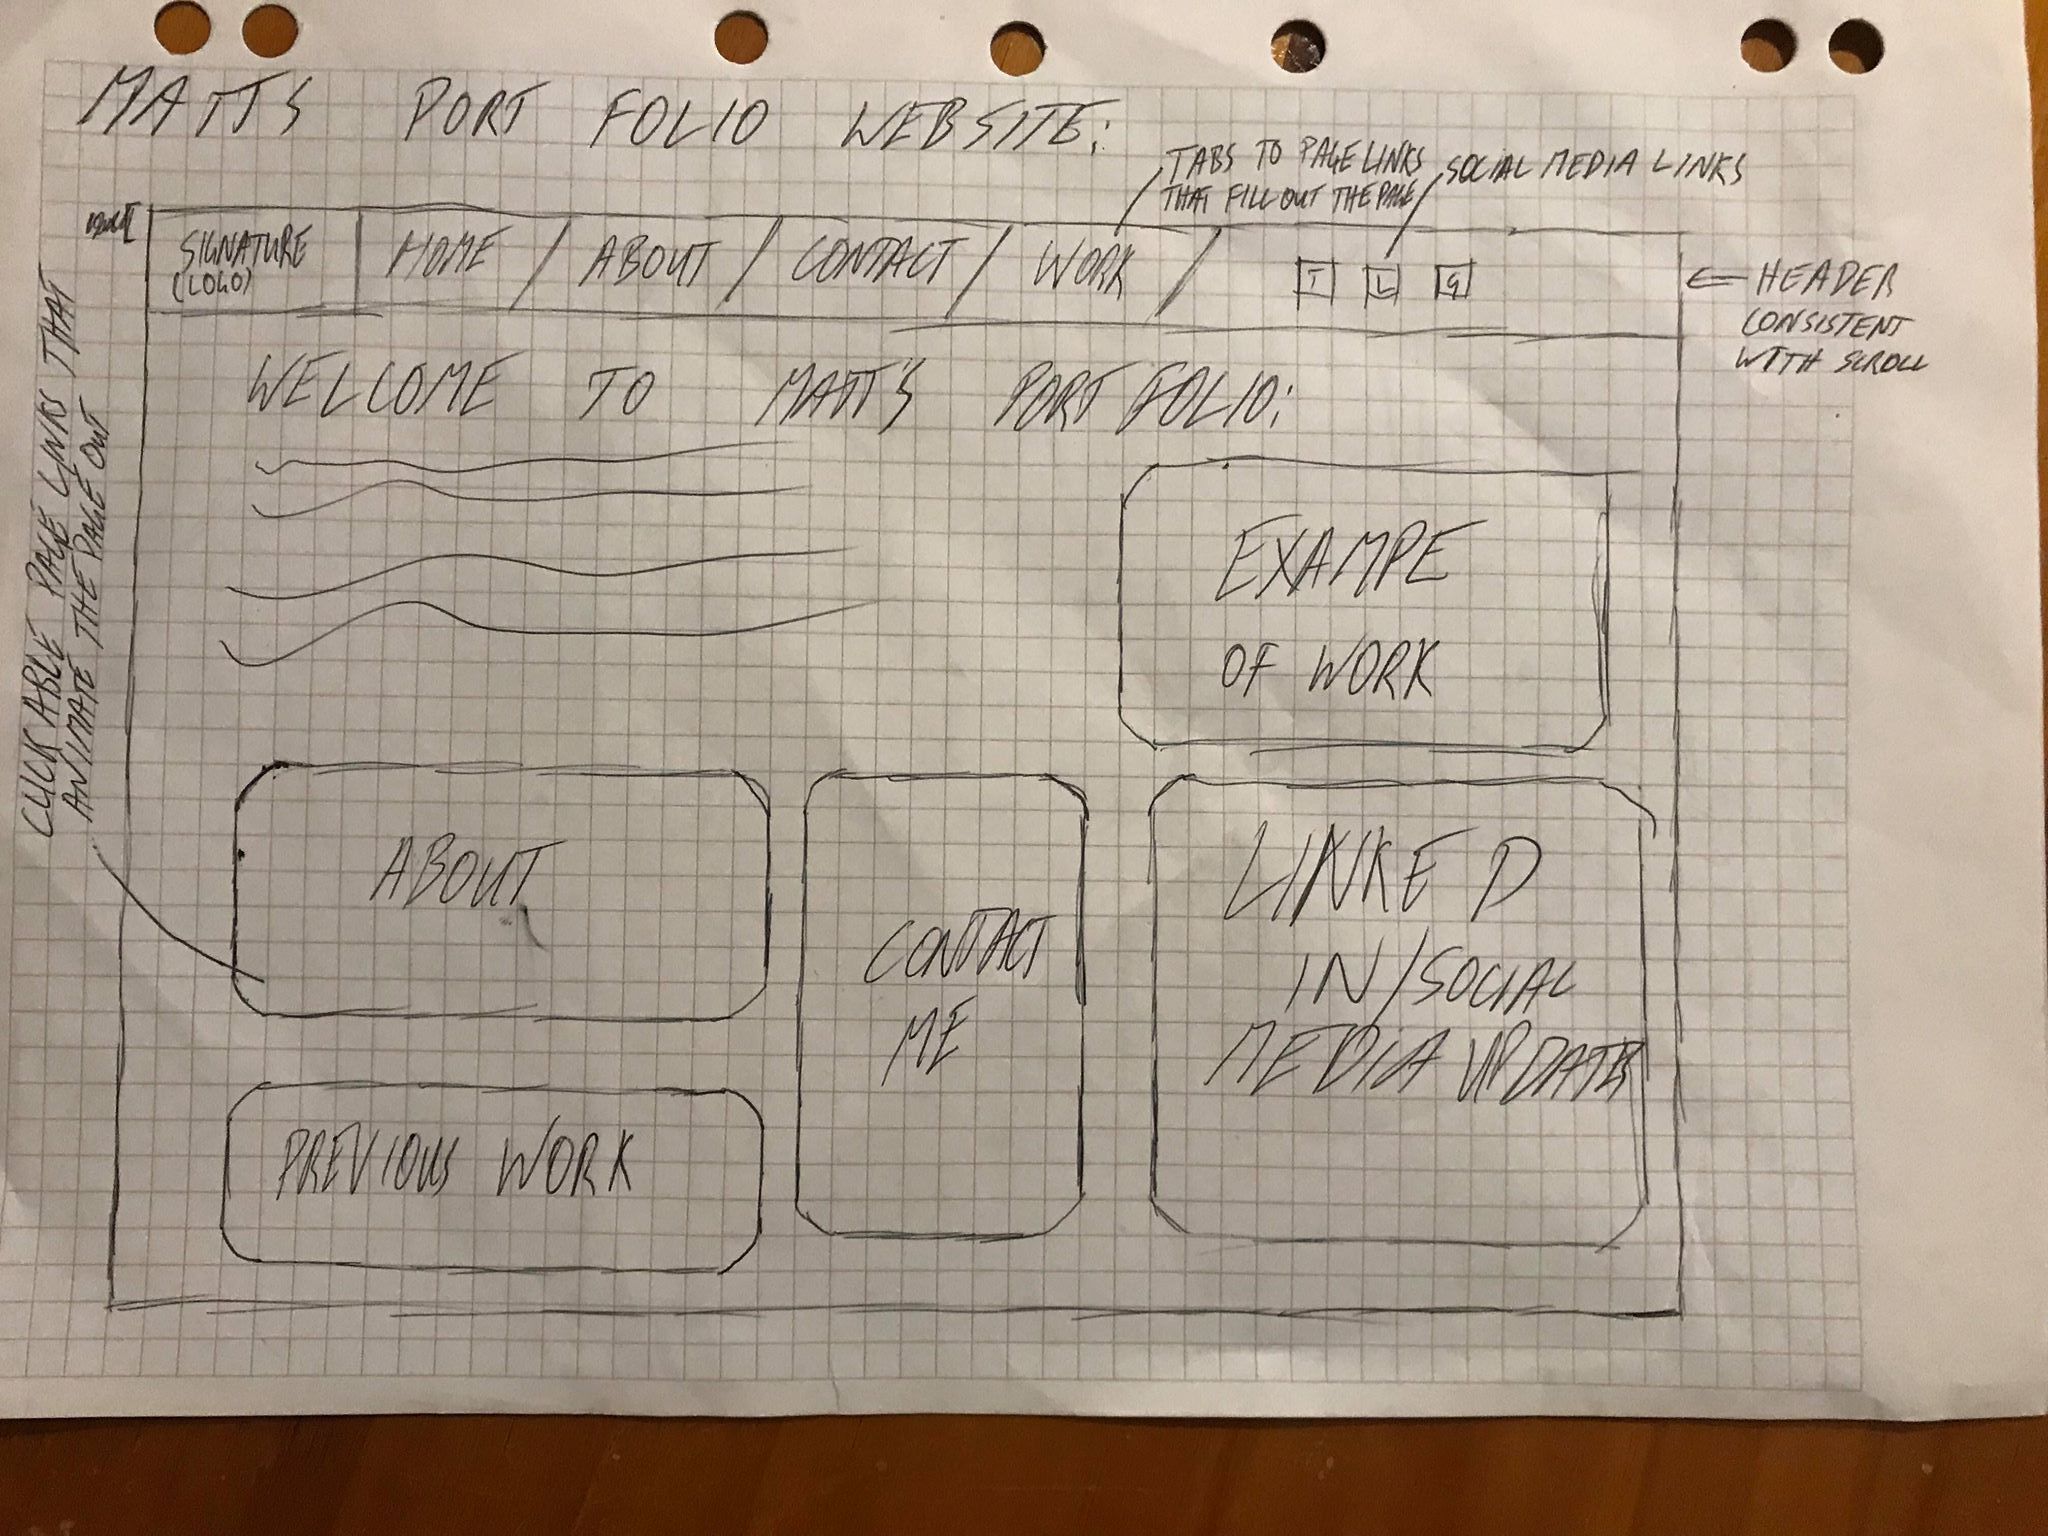 MATTS PORT FOLIO WEBSITE:
TABS TO PAGE LINKS
THAT FILL OUT THE PAGE
SOCIAL MEDIA LINKS
SIGNATURE
(LOGO)
HOME / ABOUT / CONTACT / WORK /
T L G
← HEADER
CONSISTENT
WITH SCROLL
CLICKABLE PAGE LINKS THAT
ANIMATE THE PAGE OUT
WELCOME TO MATT'S PORT FOLIO:
EXAMPE
OF WORK
ABOUT
CONTACT
ME
LINKE D
IN/SOCIAL
MEDIA UPDATES
PREVIOUS WORK